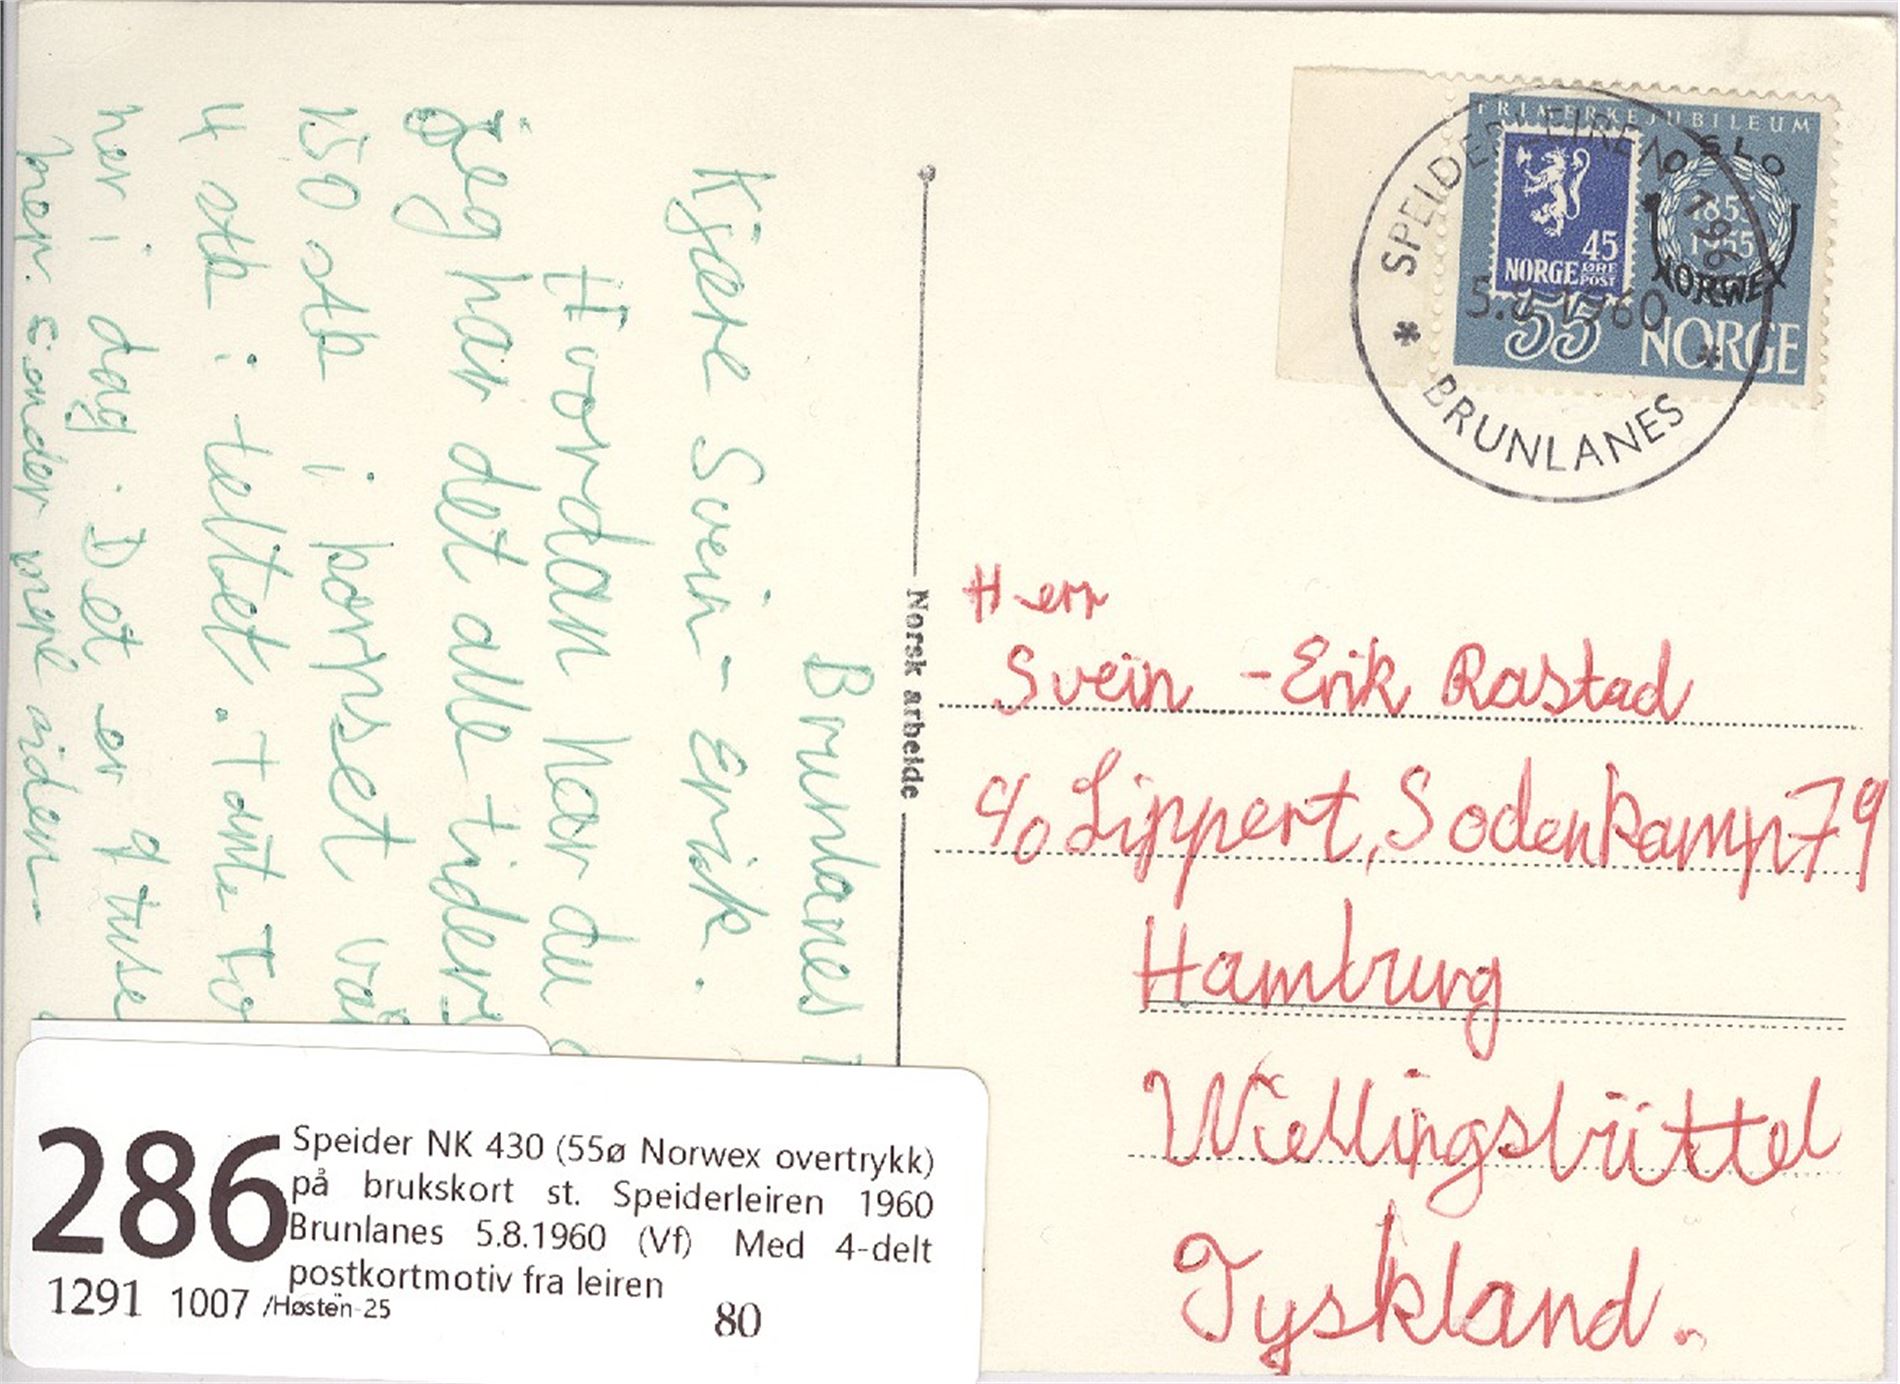 Brunlanes
Kjære Svein-Erik.
Hvordan har du
jeg har det alle tider
150 stk i korpset
4 stk i teltet. Tante
her i dag. Det er 9 tuse
mer. Sender mere siden
Norsk arbeide
FRIMERKEJUBILEUM
OSLO
1855
1955
45
NORGE ØRE POST
NORWEX
55 NORGE
SPEIDERLEIREN 1960
5.8.1960
* BRUNLANES *
Herr
Svein-Erik Rastad
c/o Lippert, Sodenkamp 79
Hamburg
Wellingsbüttel
Tyskland.
286
Speider NK 430 (55ø Norwex overtrykk)
på brukskort st. Speiderleiren 1960
Brunlanes 5.8.1960 (Vf) Med 4-delt
postkortmotiv fra leiren
1291 1007 /Høsten-25
80